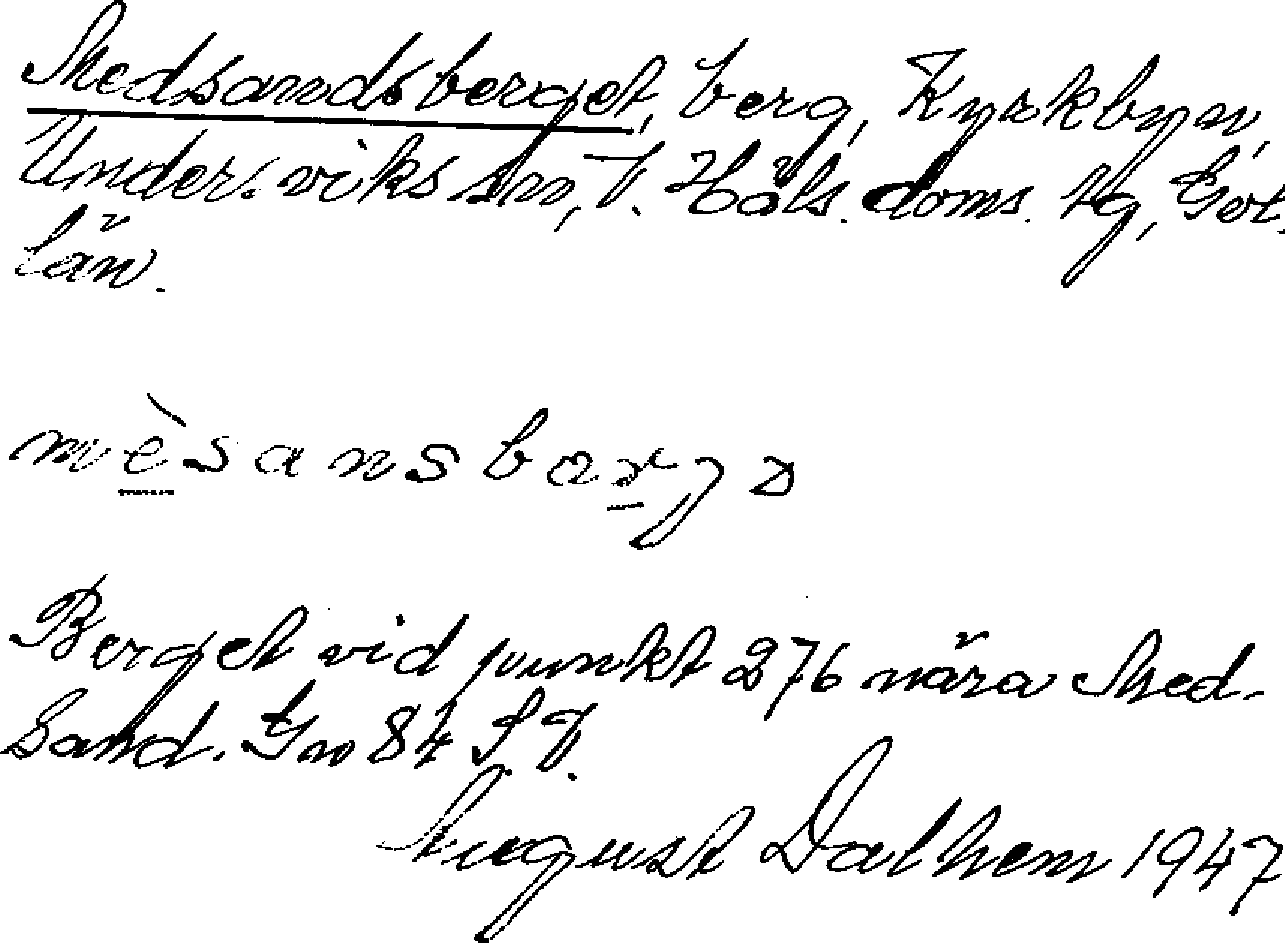 Medsandsberget, berg, Kyrkbyn,
Undersviks sn, V. Häls. doms. tg, Gvl.
län.
mèsansbarjə
Berget vid punkt 276 nära Med-
sand. Gn 84 SV.
August Dalhem 1947